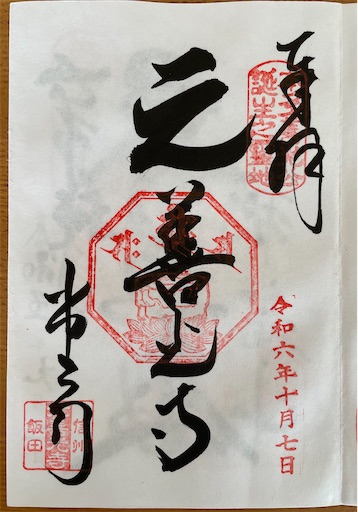 奉拝
誕生之霊地
元善光寺
令和六年十月七日
信州
元善光寺
飯田